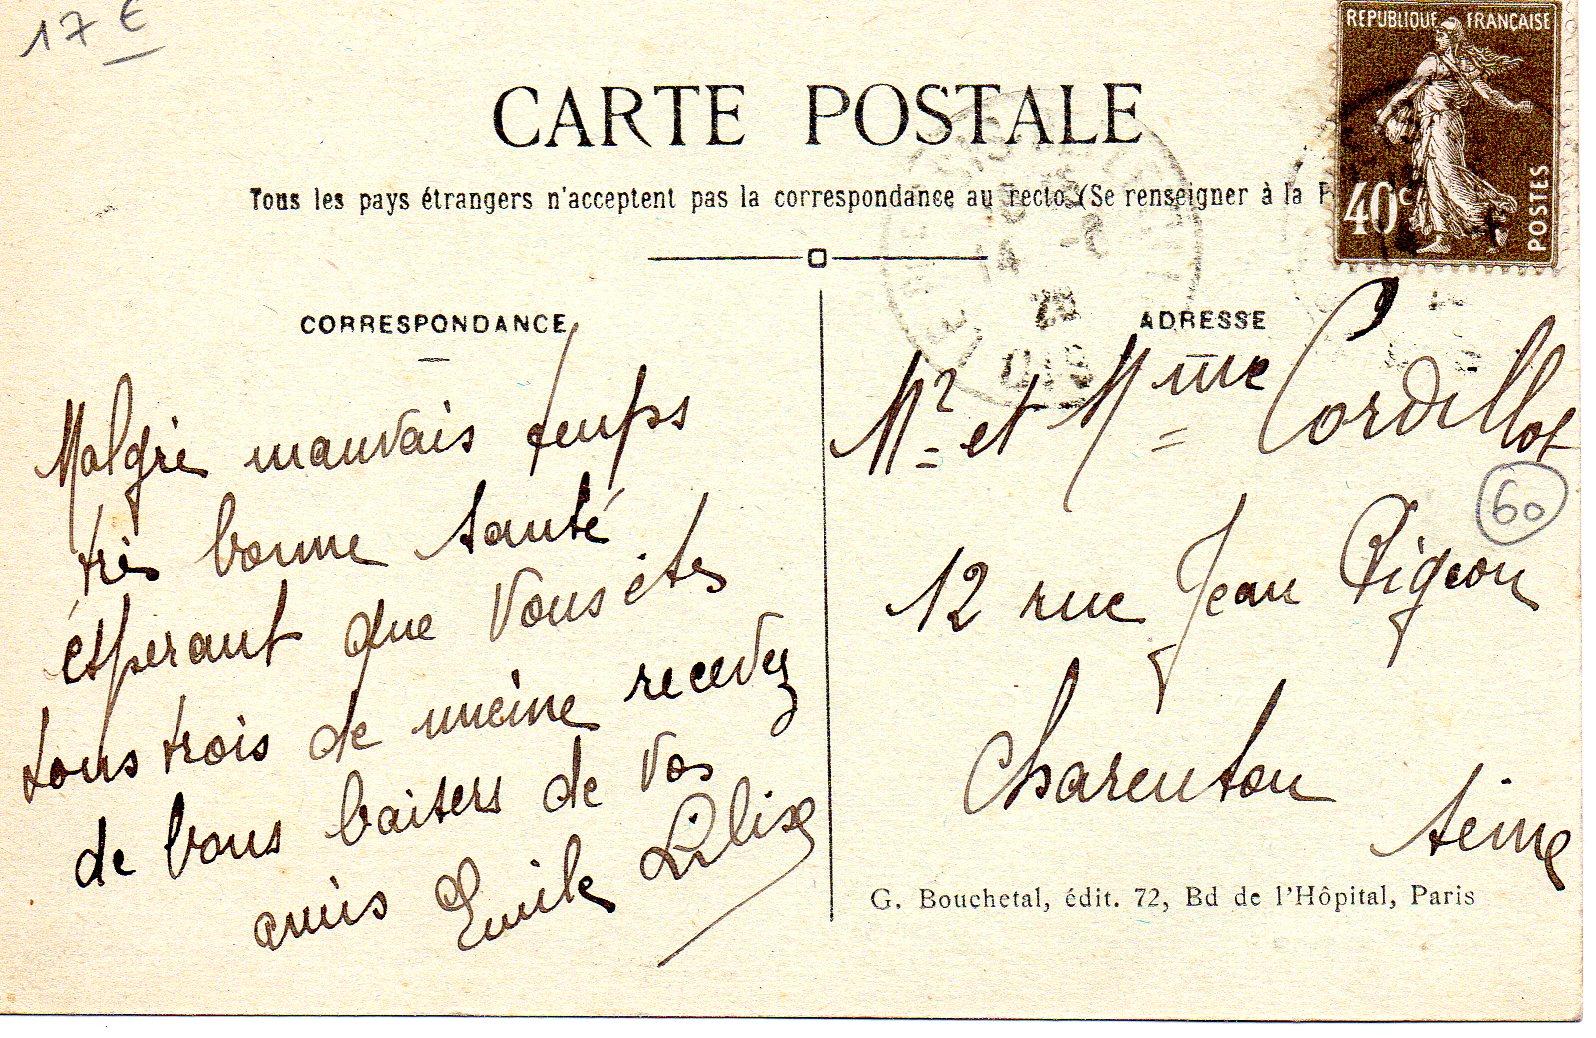 17 €
REPUBLIQUE FRANÇAISE
40c
POSTES
CARTE POSTALE
Tous les pays étrangers n'acceptent pas la correspondance au recto (Se renseigner à la P
CORRESPONDANCE
ADRESSE
Malgré mauvais temps
très bonne santé
ésperant que vous êtes
tous trois de même recevez
de bons baisers de vos
amis Emile
Mr et Mme Cordillot
60
12 rue Jean Pigeon
Charenton
Seine
G. Bouchetal, édit. 72, Bd de l'Hôpital, Paris